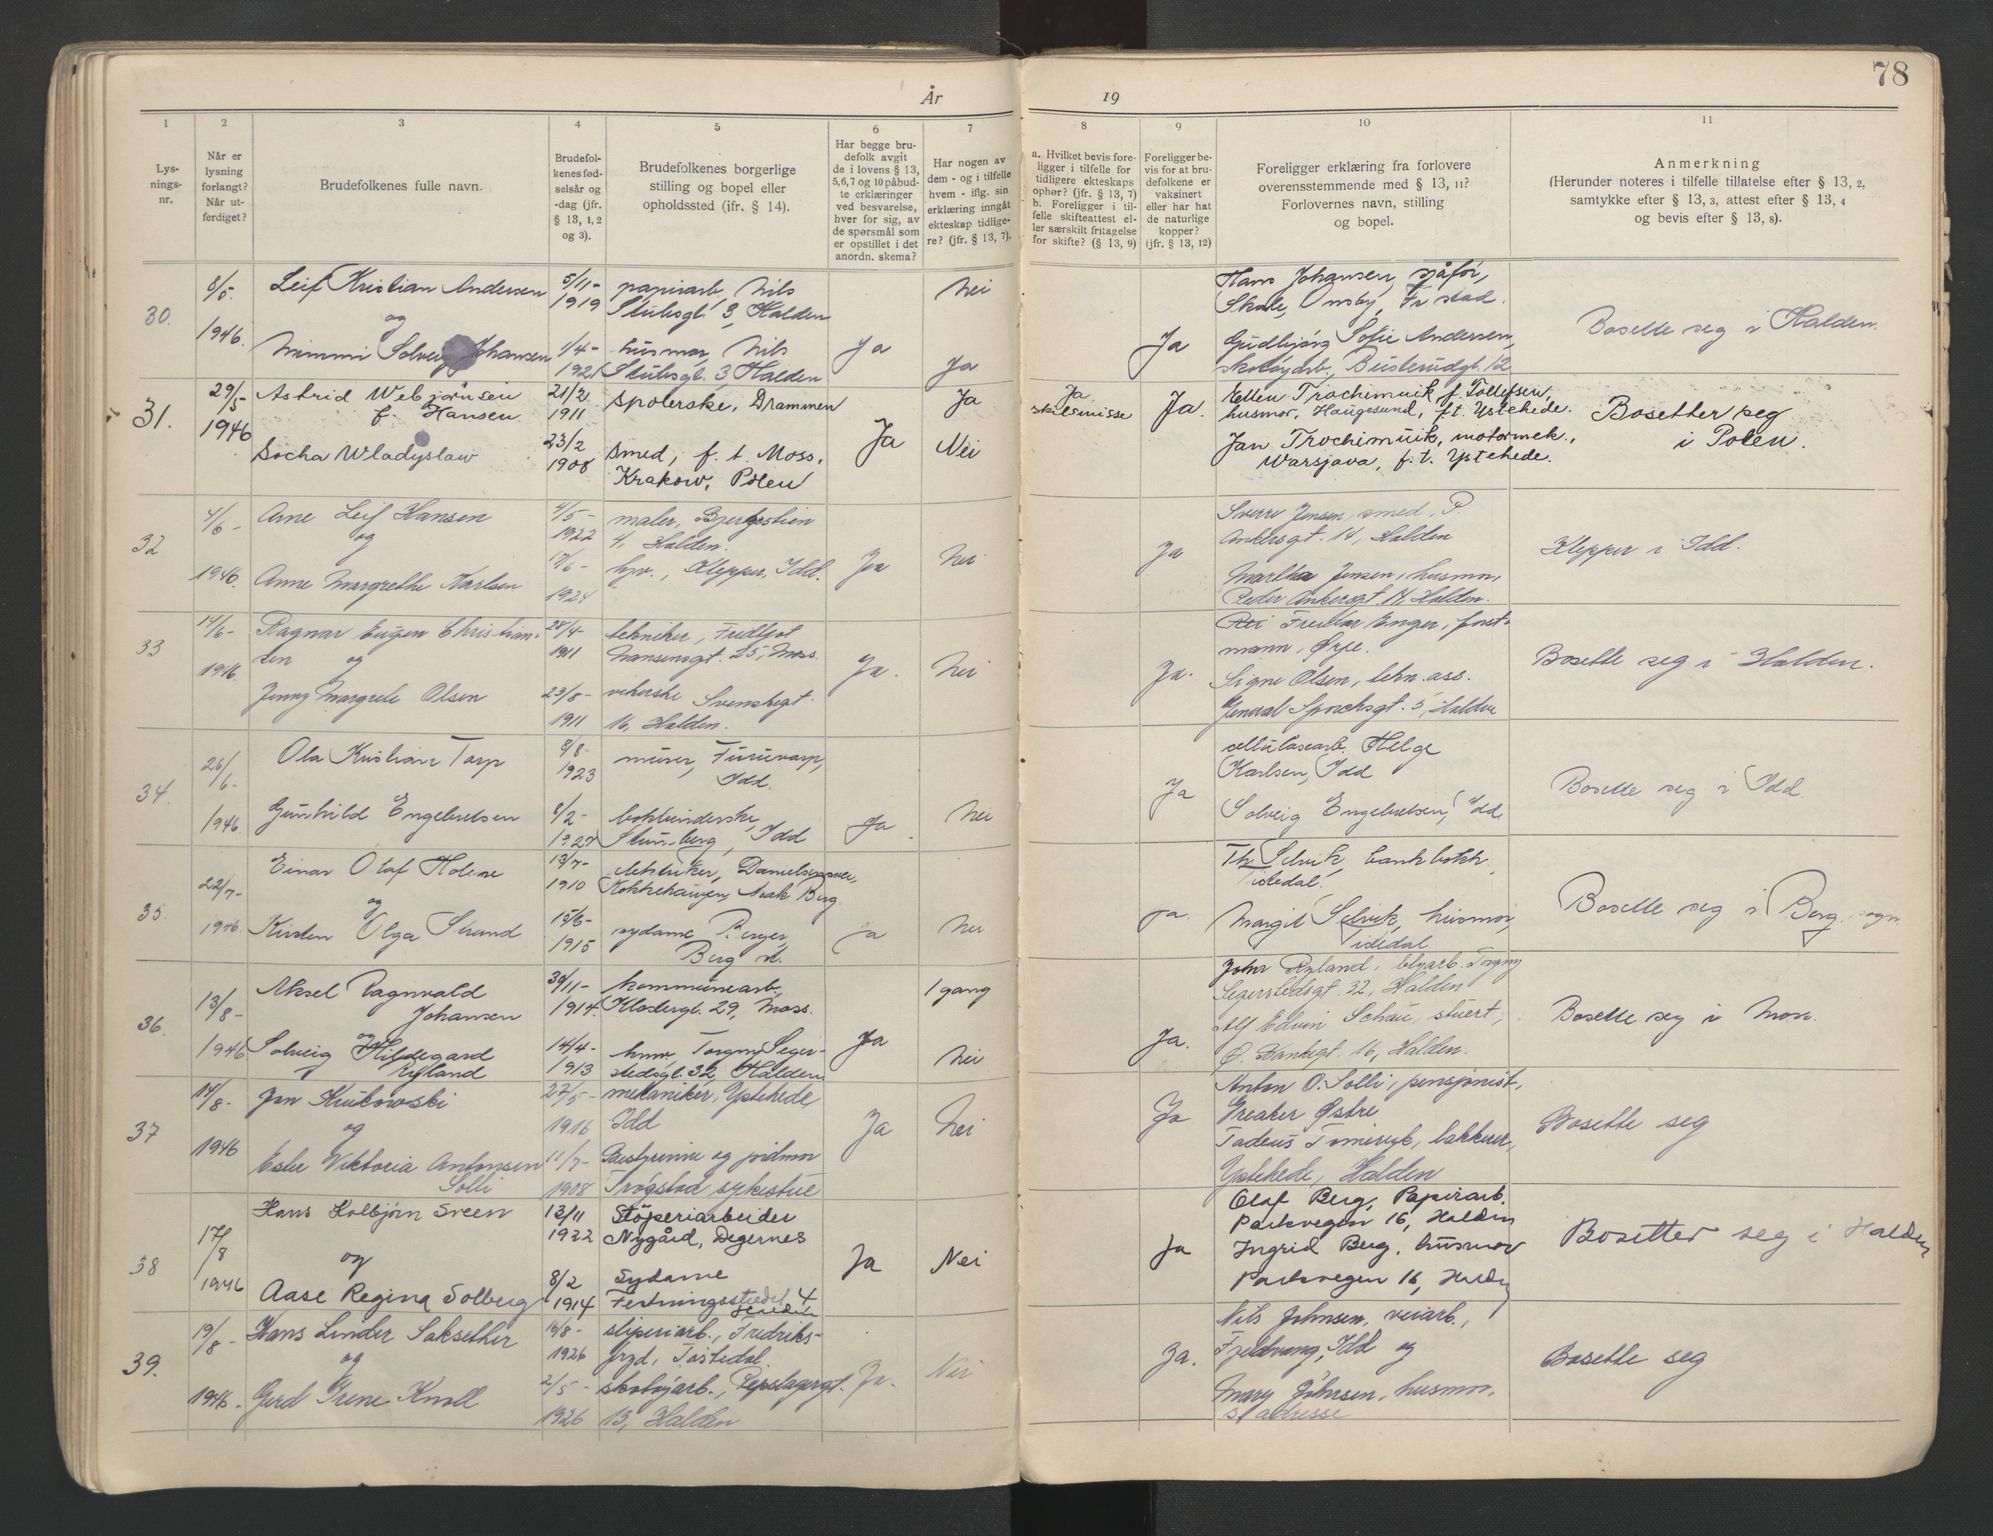 78
År 19
1
2
3
4
5
6
7
8
9
10
11
Lys-
nings-
nr.
Når er
lysning
forlangt?
Når ut-
ferdiget?
Brudefolkenes fulle navn.
Brudefol-
kenes fød-
selsår og
-dag (jfr.
§ 13, 1, 2
og 3).
Brudefolkenes borgerlige
stilling og bopel eller
opholdssted (jfr. § 14).
Har begge bru-
defolk avgit
de i lovens § 13,
5,6,7 og 10 påbud-
te erklæringer
ved besvarelse,
hver for sig, av
de spørsmål som
er opstillet i det
anordn. skema?
Har nogen av
dem - og i tilfelle
hvem - iflg. sin
erklæring inngått
ekteskap tidlige-
re? (jfr. § 13, 7).
a. Hvilket bevis fore-
ligger i tilfelle for
tidligere ekteskaps
ophør? (jfr. § 13, 7)
b. Foreligger i til-
felle skifteattest el-
ler særskilt fritagelse
for skifte? (§ 13, 9)
Foreligger be-
vis for at bru-
defolkene er
vaksinert
eller har hat
de naturlige
kopper?
(jfr. § 13, 12)
Foreligger erklæring fra forlovere
overensstemmende med § 13, 11?
Forlovernes navn, stilling
og bopel.
Anmerkning
(Herunder noteres i tilfelle tillatelse efter § 13, 2,
samtykke efter § 13, 3, attest efter § 13, 4
og bevis efter § 13, 8).
30.
8/5.
1946.
Leif Kristian Andersen
og
Mimmi Solveig Johansen
5/11-
1919
1/4-
1921
papirarb, Nils
Stubsgt 3, Halden
husmor, Nils
Stubsgt. 3 Halden
Ja
Nei
Ja
Ja
Hans Johansen, sjåfør,
Skale, Onsøy, Fr.stad.
Gudbjørg Sofie Andersen,
skotøyarb, Busterudgt. 12
Bosette seg i Halden.
31.
29/5-
1946
Astrid Webjørnsen
f. Hansen
Socha Wladyslaw
21/2
1911
23/2
1908
spolerske, Drammen
smed, f. t. Moss,
Krakow, Polen
Ja
Ja
Nei
Ja
skilsmisse
Ja.
Ellen Trochimuik f. Tollefsen,
husmor, Haugesund, f.t. Ystehede.
Jan Trochimuik, motormek.,
Warsjava, f. t. Ystehede.
Bosetter seg
i Polen.
32
4/6-
1946.
Arne Leif Hansen
og
Anne Margrethe Karlsen
4/5-
1922
17/6-
1924
maler, Bjergstien
4, Halden.
hjv., Klepper, Idd.
Ja
Nei
Ja
Sverre Jensen, smed, P.
Ankersgt. 14, Halden
Martha Jensen, husmor,
Peder Ankersgt. 14, Halden.
Klepper i Idd.
33
14/6-
1946.
Ragnar Eugen Christian-
sen og
Jenny Margrete Olsen
28/4-
1911
23/8-
1911
tekniker, Fridtjof
Nansensgt. 25, Moss.
Svenskegt.
16, Halden.
Ja.
Nei
Ja.
Enger, forst-
mann, Ørje.
Signe Olsen, tekn. ass.
General Sponecksgt. 5, Halden
Bosette seg i Halden.
34.
26/6-
1946.
Ola Kristian Torp
Gunhild Engebretsen
8/8-
1923
8/2-
1927
murer, Furuvarp,
Idd.
bokbinderske,
Idd
Ja
Nei
Ja
cellulosearb. Helge
Karlsen, Idd
Solveig Engebretsen, Idd,
Bosette seg i Idd.
35.
22/7-
1946.
Einar Olaf Holene
og
Kirsten Olga Strand
13/7-
1910
15/6-
1915
elektriker,
Asak Berg
sydame Berger,
Berg st.
ja
Nei
ja.
Th. Selvik, bankbokh.
Tistedal.
Margit Selvik, husmor,
Tistedal
Bosette seg i Berg, sogn
36.
13/8-
1946
Aksel Ragnvald
Johansen
og
Solveig Hildegard
Ryland
30/11-
1914.
14/4-
1913
kommunearb.
Klostergt. 29, Moss.
hmv. Torgny Seger-
stedsgt. 32, Halden.
Ja
1 gang
Nei
Ja.
John Ryland, blyarb. Torgny
Segerstedsgt. 32, Halden
Alf Edvin Schau, stuert,
Ø. Bankegt. 16, Halden.
Bosette seg i Moss.
37
14/8-
1946
Jan Krukowski
og
Ester Viktoria Antonsen
Solli
27/5-
1916
11/7-
1908
mekaniker, Ystehede
Idd
Bestyrerinne og jordmor
Trøgstad sykestue
Ja
Nei
Ja
Anton O. Solli, pensjonist,
Greaker Østre
Tadeus Tomiczyk, bakkerer,
Ystehede, Halden
Bosette seg
38
17/8
1946
Hans Kolbjørn Sveen
og
Aase Regina Solberg
13/11
1922
8/2
1914
Støperiarbeider
Nygård, Degernes
Sydame
Festningsstedet 4
Halden
Ja
Nei
Ja
Olaf Berg, Papirarb.
Parkvegen 16, Halden
Ingrid Berg, husmor
Parkvegen 16, Halden
Bosetter seg i Halden
39.
19/8-
1946.
Hans Linder Saksether
og
Gerd Irene Knoll
16/8-
1926
2/5-
1926
sliperiarb., Fredriks-
fryd, Tistedal.
skotøyarb., Repslagergt.
13, Halden
Ja.
Nei
Ja.
Nils Johnsen, veiarb.,
Fjeldvang, Idd og
Mary Johnsen, husmor,
s. adresse
Bosette seg